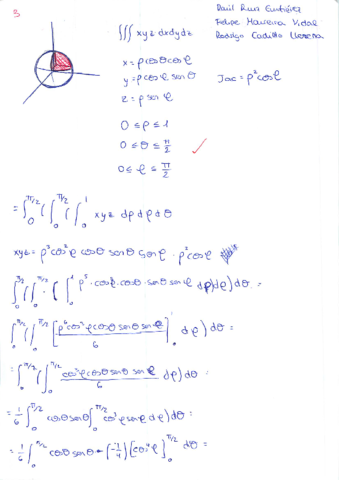 3
Felipe Maureira Vidal
∭ xyz dxdydz
x = ρcosθcosφ
y = ρcosφ senθ
Jac = ρ² cosφ
z = ρ senφ
0 ≤ ρ ≤ 1
0 ≤ θ ≤ π/2
0 ≤ φ ≤ π/2
= ∫₀^π/2 (∫₀^π/2 (∫₀^1 xyz dρ dφ dθ
xyz = ρ³cos²φ cosθ senθ senφ · ρ²cosφ
∫₀^π/2 (∫₀^π/2 · ( ∫₀^1 ρ⁵ · cosφ · cosθ · senθ senφ dρ) dφ) dθ =
∫₀^π/2 (∫₀^π/2 [ρ⁶cos³φcosθ senθ senφ / 6]₀ dφ) dθ =
= ∫₀^π/2 (∫₀^π/2 cos³φcosθ senθ senφ / 6 dφ) dθ =
= 1/6 ∫₀^π/2 cosθ senθ ∫₀^π/2 cos³φ senφ dφ) dθ =
= 1/6 ∫₀^π/2 cosθ senθ · (-1/4) [cos⁴φ]₀^π/2 dθ =